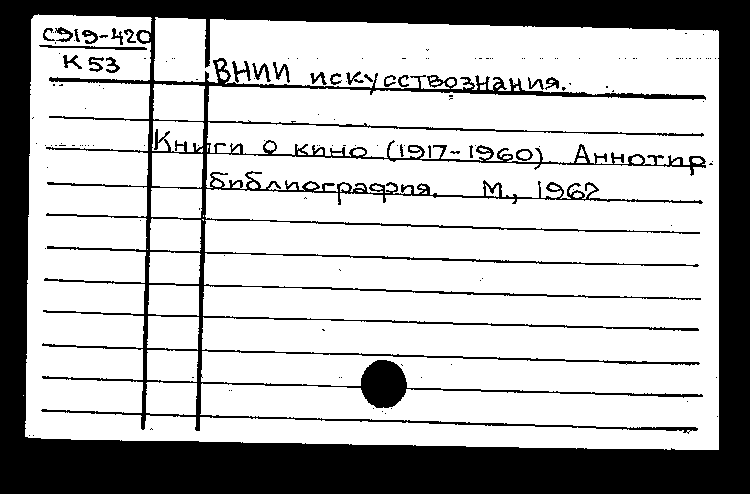 С919-420
К 53
ВНИИ искусствознания.
Книги о кино (1917-1960) Аннотир.
библиография. М., 1962